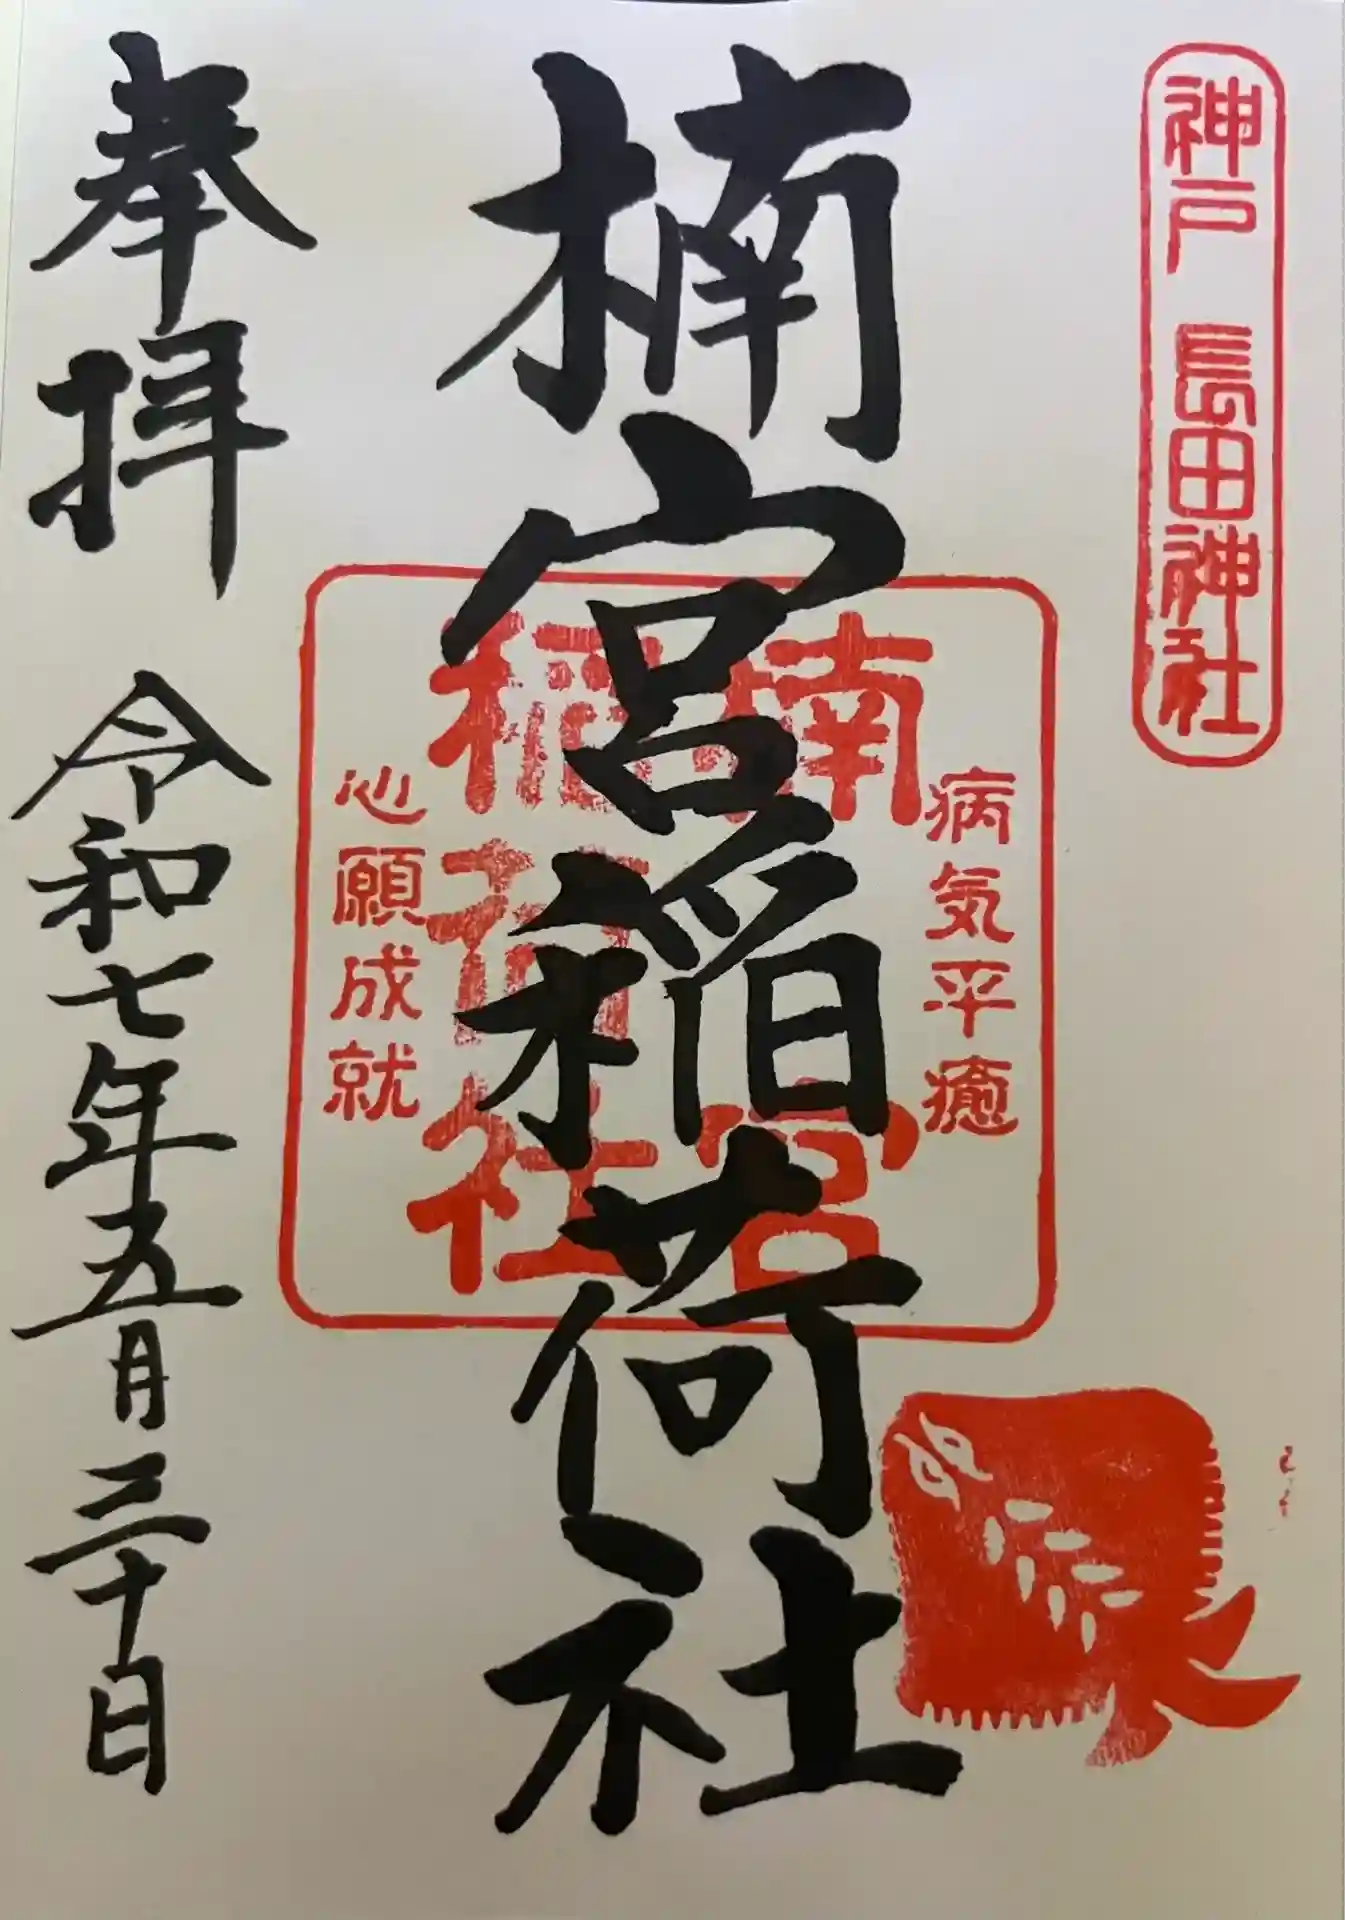 神戸 長田神社
病気平癒
楠宮
稲荷社
心願成就
楠宮稲荷社
奉拝
令和七年五月三十日